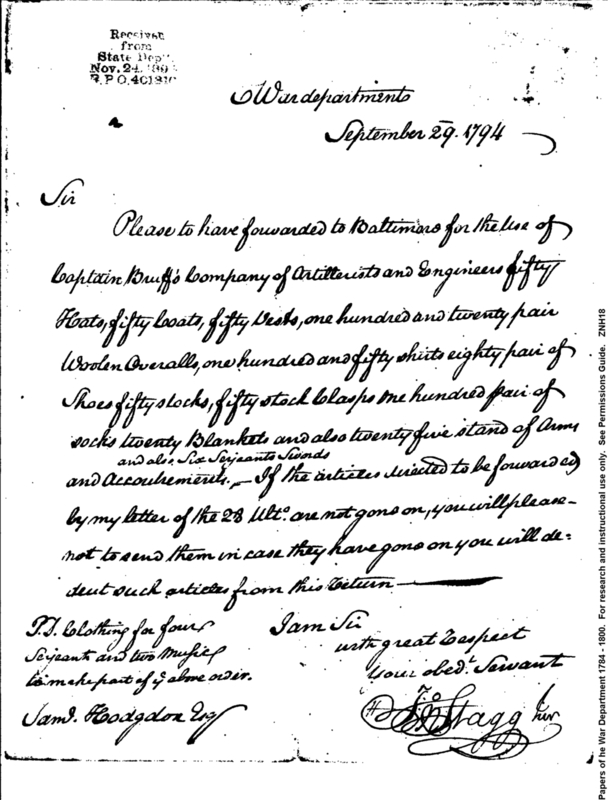 Received
from
State Dep't
Nov. 24, 189
R.P.O. 401810
War department
September 29. 1794
Sir
Please to have forwarded to Baltimore for the Use of
Captain Bruff's Company of Artillerists and Engineers fifty
Hats, fifty Coats, fifty Vests, one hundred and twenty pair
Woolen Overalls, one hundred and fifty shirts eighty pair of
Shoes fifty stocks, fifty stock Clasps one hundred pair of
socks twenty Blankets and also twenty five stand of Arms
and also Six Serjeants Swords
and Accoutrements. If the articles directed to be forwarded
by my letter of the 23 Ulto. are not gone on, you will please
not to send them in case they have gone on you will de-
duct such articles from this Return
P.S. Clothing for four
Serjeants and two Music
to make part of ye above order.
Saml. Hodgdon Esq
I am Sir
with great Respect
your obedt. Servant
Jno Stagg Junr
Papers of he War Department 1784 - 1800. For research and instructional use only. See Permissions Guide. ZNH18